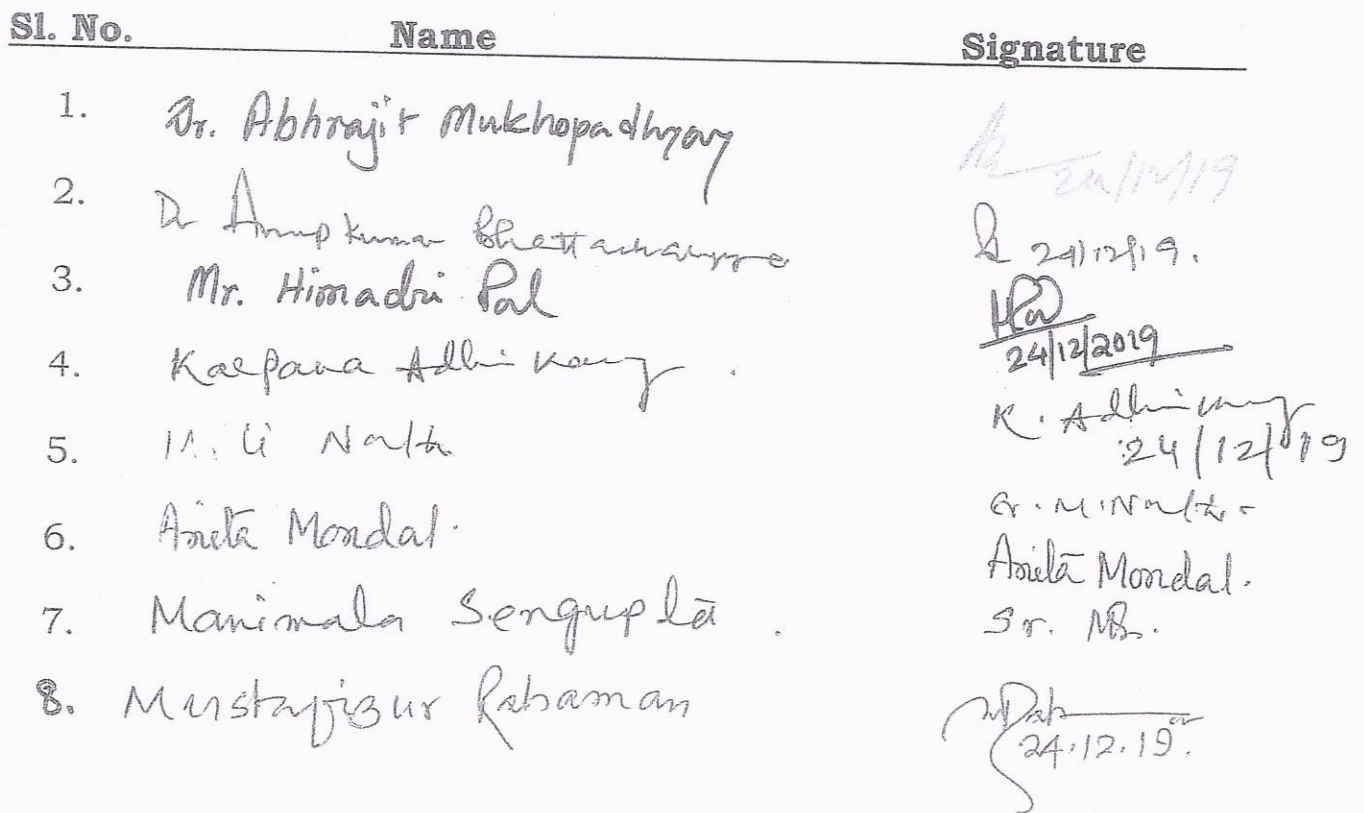 Sl. No. Name Signature
1. Dr. Abhrajit Mukhopadhyay
24/12/19
2. Dr Anup Kumar Bhattacharyya
24/12/19.
3. Mr. Himadri Pal
HPal
24/12/2019
4. Kalpana Adhikary.
K. Adhikary
24/12/19
5. Mili Nath
Sr. M. Nath
6. Anita Mondal.
Anita Mondal.
7. Manimala Sengupta.
Sr. MS.
8. Mustafizur Rahaman
24.12.19.